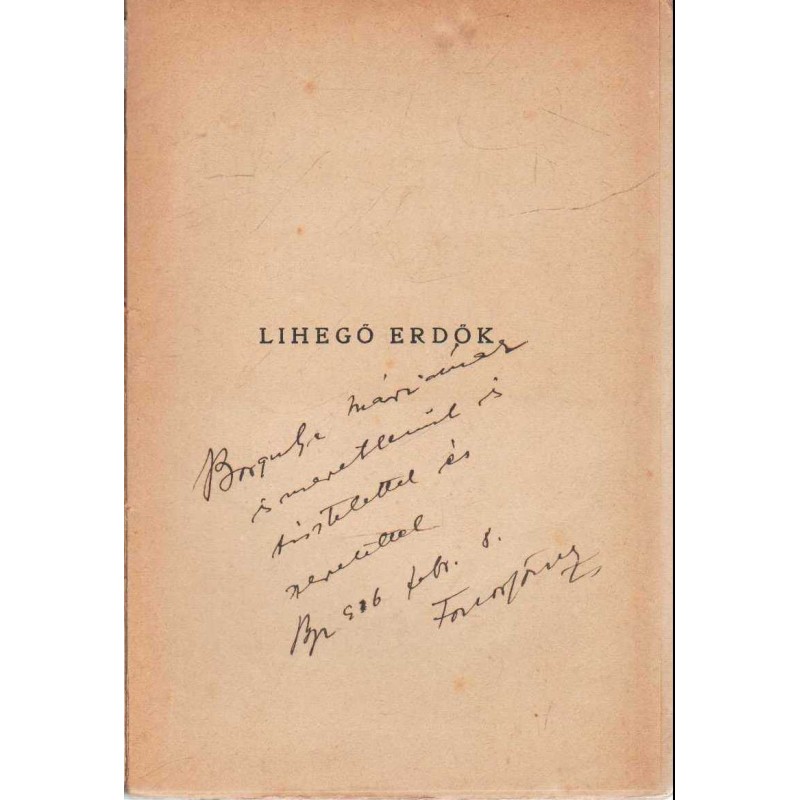 LIHEGŐ ERDŐK
Máriának
ismeretlenül is
tisztelettel és
szeretettel
Bp 936 febr. 8.
Fodor József